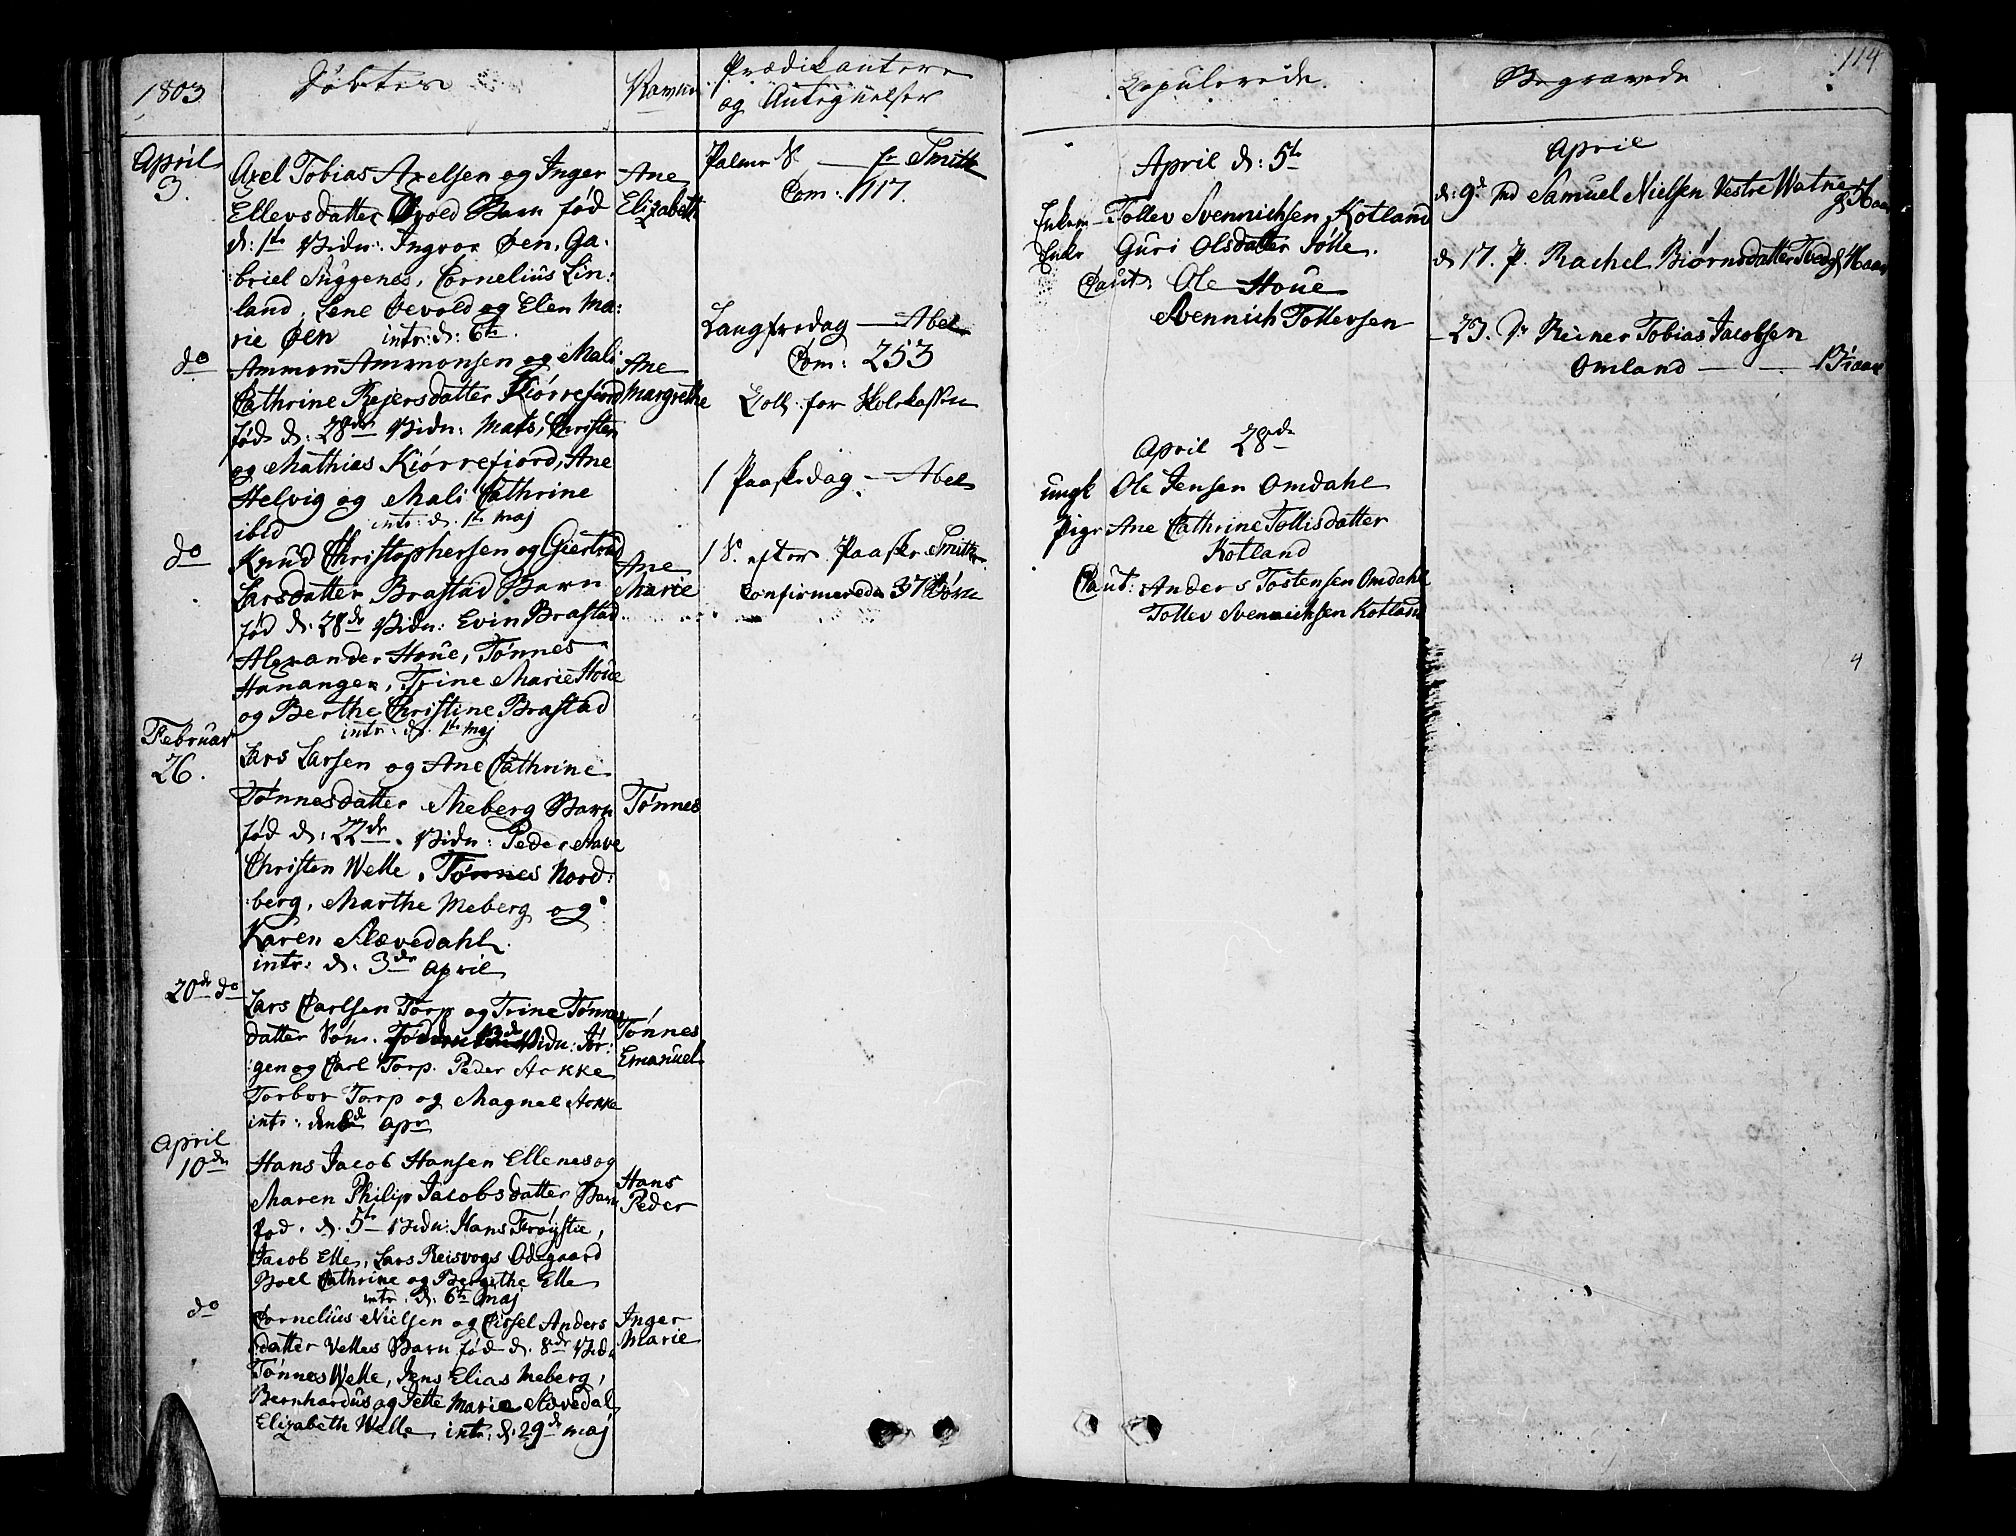 1803
Døbte
Navne
Prædikantere
og Anteignelser
April
3.
Axel Tobias Axelsen og Inger
Ellersdatter Barn fød
d: 1te Vidn: Ingvor Øen, Ga-
briel Suggenes, Cornelius Lin-
land, Lene Øevold og Elen Ma-
rie Øen intr: d: 6te
Ane
Elizabeth
do
Ammon Ammonsen og Mali
Cathrine Rejersdatter Kiørrefiord
fød d: 28de Vidn: Mats, Christen
og Mathias Kiørrefiord, Ane
Helvig og Mali Cathrine
ibid intr: d. 1te maj
Ane
Margrethe
do
Knud Christophersen og Giertrud
Larsdatter Brastad Barn
fød d: 28de Vidn: Evin Brastad
Alexander Houe, Tønnes
Hananger, Trine Marie Houe
og Berthe Christine Brastad
intr: d. 1te maj
Ane
Marie
Februar
26.
Lars Larsen og Ane Cathrine
Tønnesdatter Meberg Barn
fød d: 22de. Vidn: Peder Have
Christen Welle, Tønnes Nord-
berg, Marthe Meberg og
Karen Slævedahl.
intr: d. 3de April
Tønnes
20de do
Lars Carlsen Torp og Trine Tønnes
datter Søn. Vidn: Jør-
gen og Carl Torp. Peder Stokke
Torbor Torp og Magnel Stokke
intr: den apr
Tønnes
Emanuel
April
10de
Hans Jacob Hansen Ellenes og
Maren Philip Jacobsdatter Barn
fød. d. 5te Vidn: Hans Frøystie,
Jacob Elle, Lars Reisvogs Odegaard
Boel Cathrine og Bergithe Elle
intr: d: 6te maj
Hans
Peder
do
Cornelius Nielsen og Cissel Anders
datter Velles Barn fød d. 8de Vidn
Tønnes Welle, Jens Elias Meberg,
Bernhardus og Jette Marie Slævedal
Elizabeth Welle, intr: d: 29de maj
Inger
Marie
Palme S. — hr Smith
Com: 117.
Langfredag — Abel
Com: 253
Coll: for Skolekassen
1 Paaskedag — Abel
1 S. efter Paaske Smith
Confirmerede 37 Børn
Copulerede
April d: 5te
Enkem – Tollev Svennichsen Kotland
Enke Guri Olsdatter Jølle.
Caut. Ole Houe
Svennich Tollevsen
April 28de
ungk Ole Jensen Omdahl
pige Ane Cathrine Tollisdatter
Kotland
Caut: Anders Tostensen Omdahl
Tollev Svennichsen Kotland
Begravede
114
April
d: 9de Samuel Nielsen Vestre Watne
d 17. P. Rachel Biørnsdatter
– 23. Reiner Tobias Jacobsen
Omland